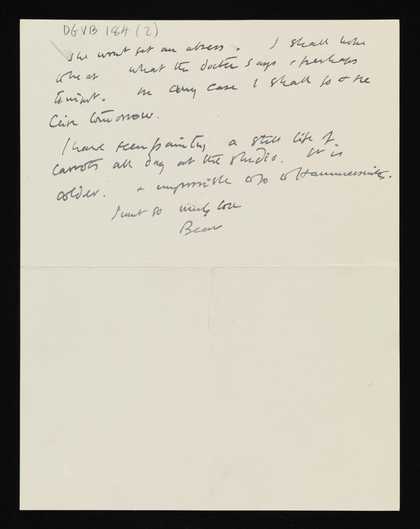 DGVB 184 (2)
She wont get an abcess. I shall
what the doctor says & perhaps
tonight. In any case I shall go & see
tomorrow.
I have been painting a still life of
carrots all day at the studio. It is
colder. & impossible to go to Hammersmith.
must go much love
Bear